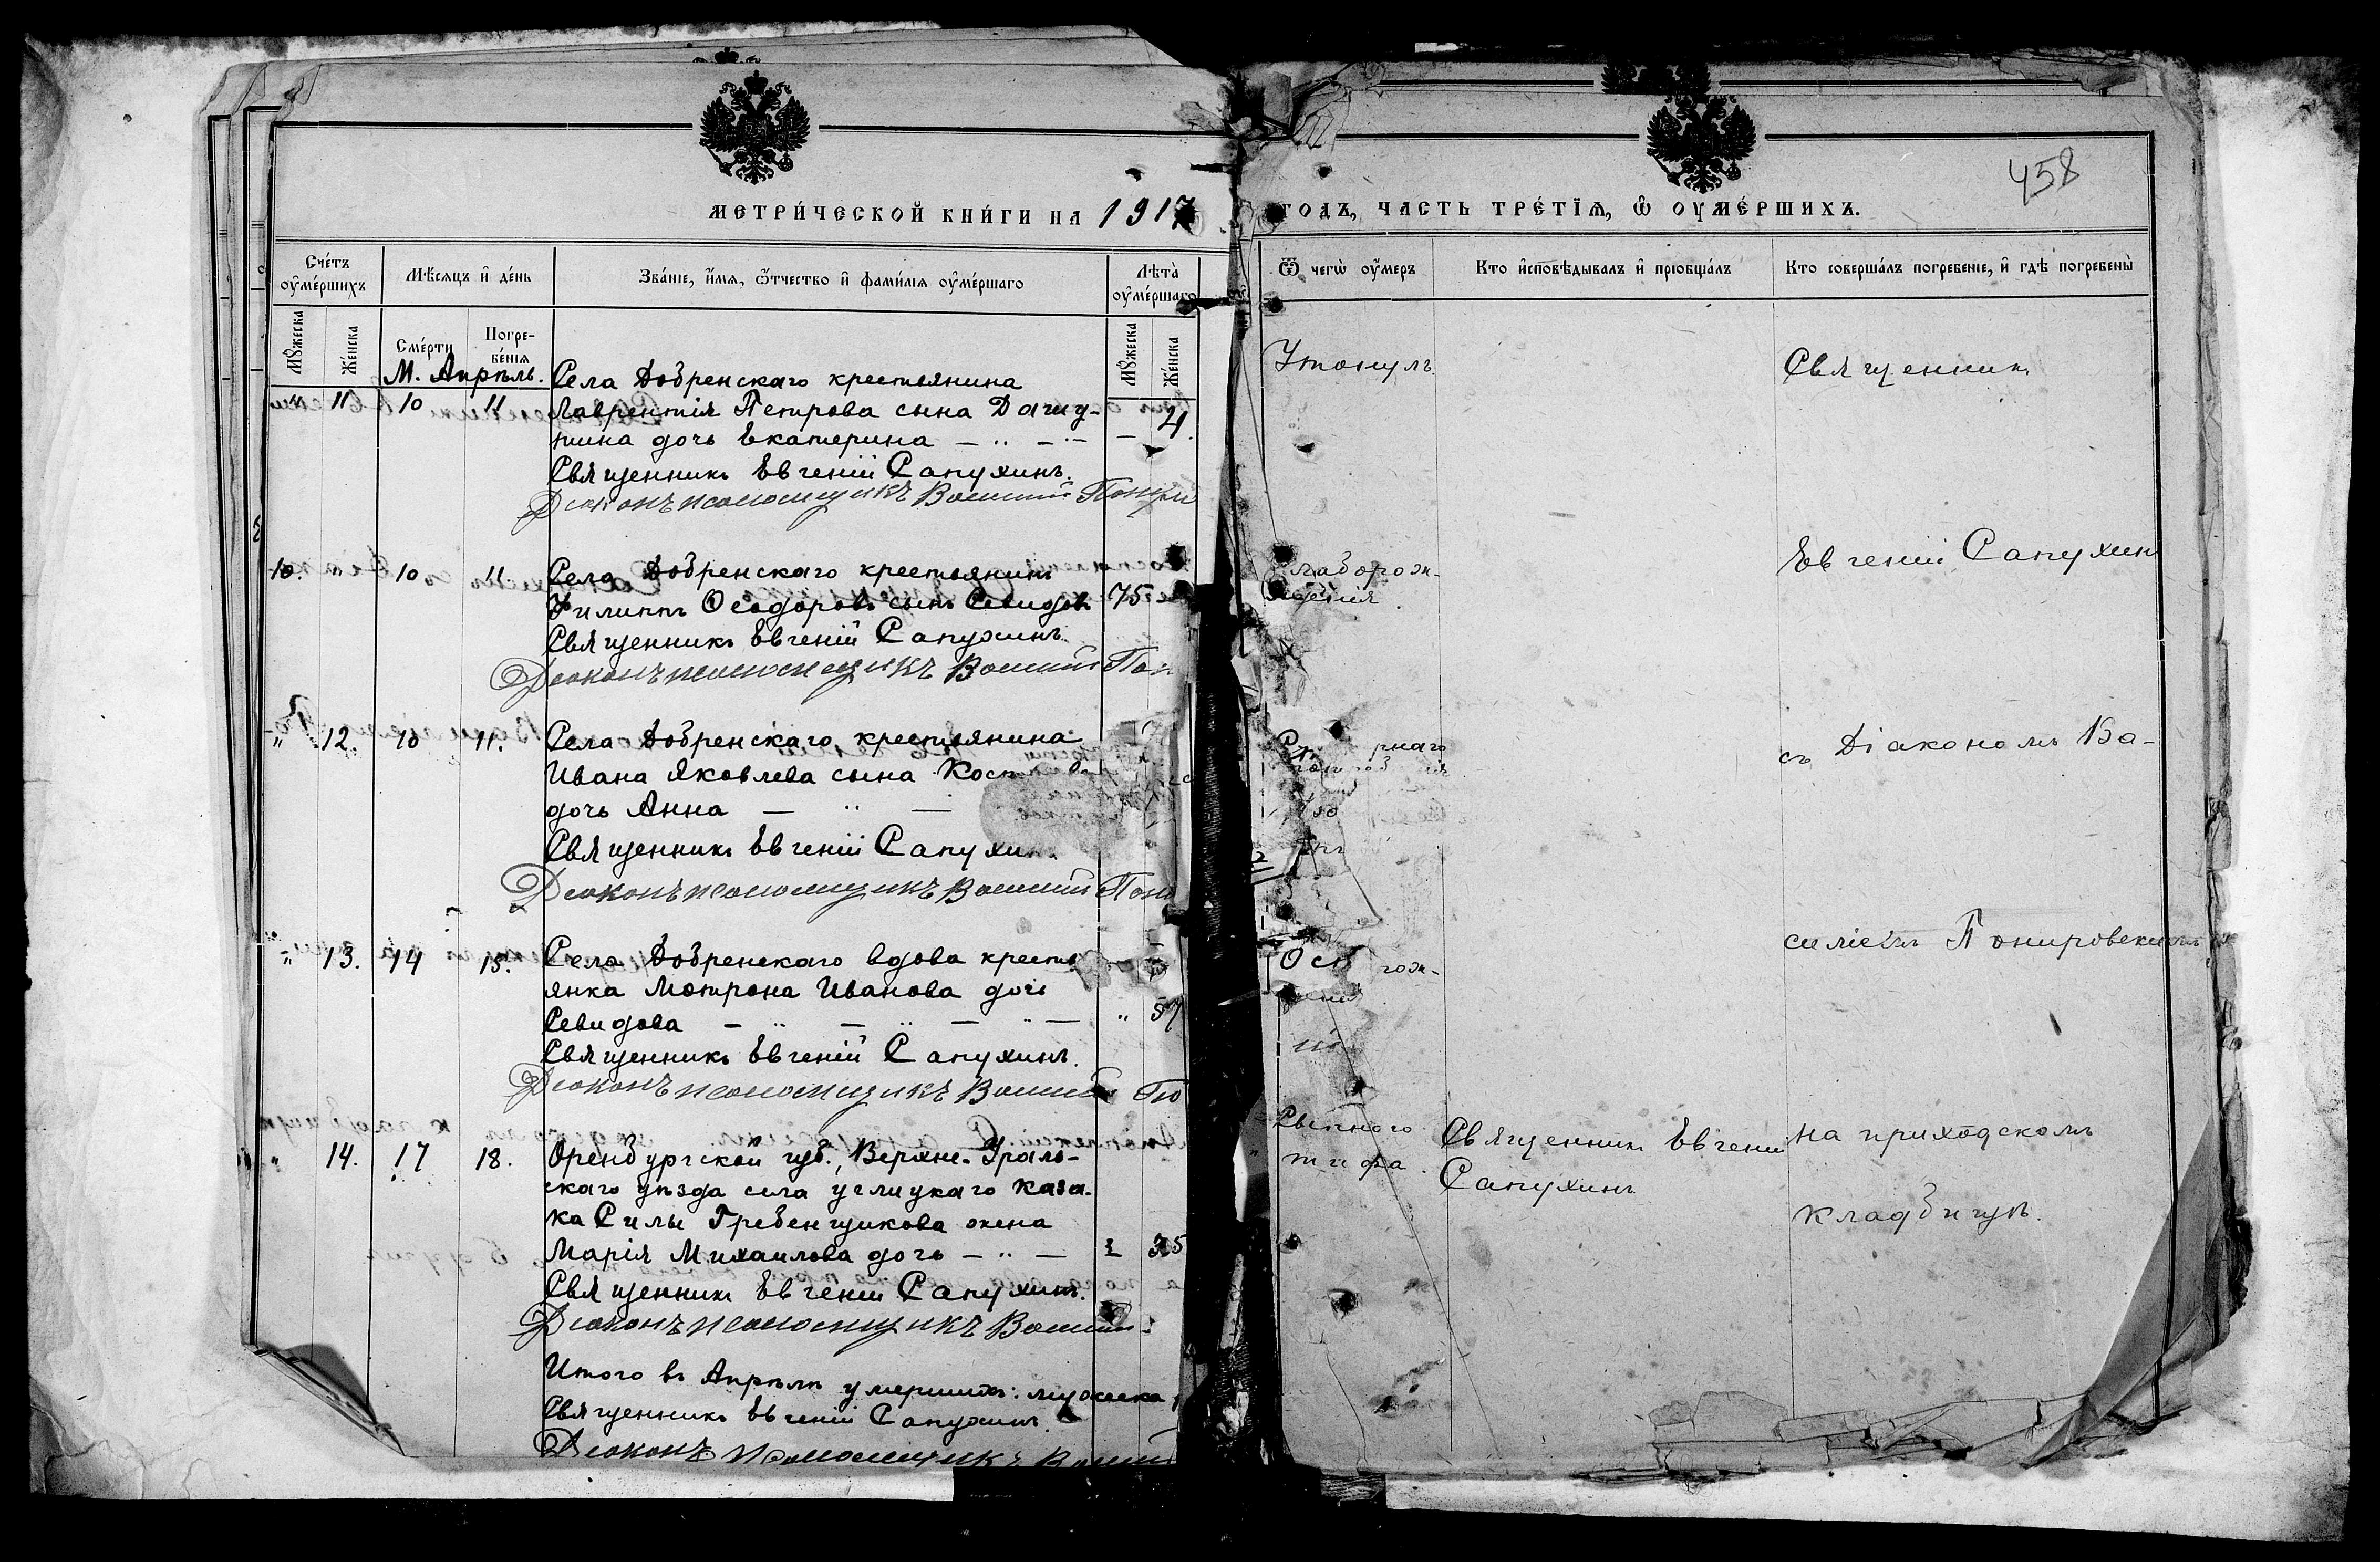 458
МЕТРИ́ЧЕСКОЙ КНИ́ГИ НА 1917
ГОДЪ, ЧАСТЬ ТРЕ́ТЇѦ, Ѿ ОУМЕ́РШИХЪ.
Сче́тъ оумершихъ
Мѣсяцъ и де́нь
Зва́нїе, имя, отчество и фами́лїя оуме́ршаго
Лѣта̀ оуме́ршаго
Ѿ чегѡ̀ оумеръ
Кто исповѣдывалъ и прїобща́лъ
Кто соверша́лъ погребенїе, и гдѣ погребены̀
Мꙋжеска
Же́нска
Сме́рти
Погребе́нїя
Мꙋжеска
Же́нска
М. Апрѣль.
" 11 10 11
Села Добренскаго крестьянина
Лаврентія Петрова сына
дочь Екатерина — " —
Священникъ Евгеній Сапухинъ.
Діаконъ псаломщикъ Василій
Утонулъ
Священникъ
10. " 10 11
Села Добренскаго крестьянинъ
Филиппъ Ѳеодоровъ сынъ Севидовъ 75
Священникъ Евгеній Сапухинъ.
Діаконъ псаломщикъ Василій
Евгеній Сапухинъ
" 12. 10 11.
Села Добренскаго крестьянина
Ивана Яковлева сына
дочь Анна — " —
Священникъ Евгеній Сапухинъ.
Діаконъ псаломщикъ Василій
съ Діакономъ Ва-
" 13. 14 15.
Села Добренскаго вдова кресть
янка Мотрона Иванова дочь
Севидова — " — " — " — " 57
Священникъ Евгеній Сапухинъ.
Діаконъ псаломщикъ Василій
силіемъ Понировскимъ
" 14. 17 18.
Оренбургской губ., Верхне-Ураль-
скаго уѣзда села Углицкаго каза-
ка Силы Гребенщикова жена
Марія Михаилова дочь — " —
Священникъ Евгеній Сапухинъ.
Діаконъ псаломщикъ Василій
Сыпного
тифа.
Священникъ Евгеній
Сапухинъ
на приходскомъ
кладбищѣ.
Итого въ Апрѣлѣ умершихъ: мужеска
Священникъ Евгеній Сапухинъ
Діаконъ псаломщикъ